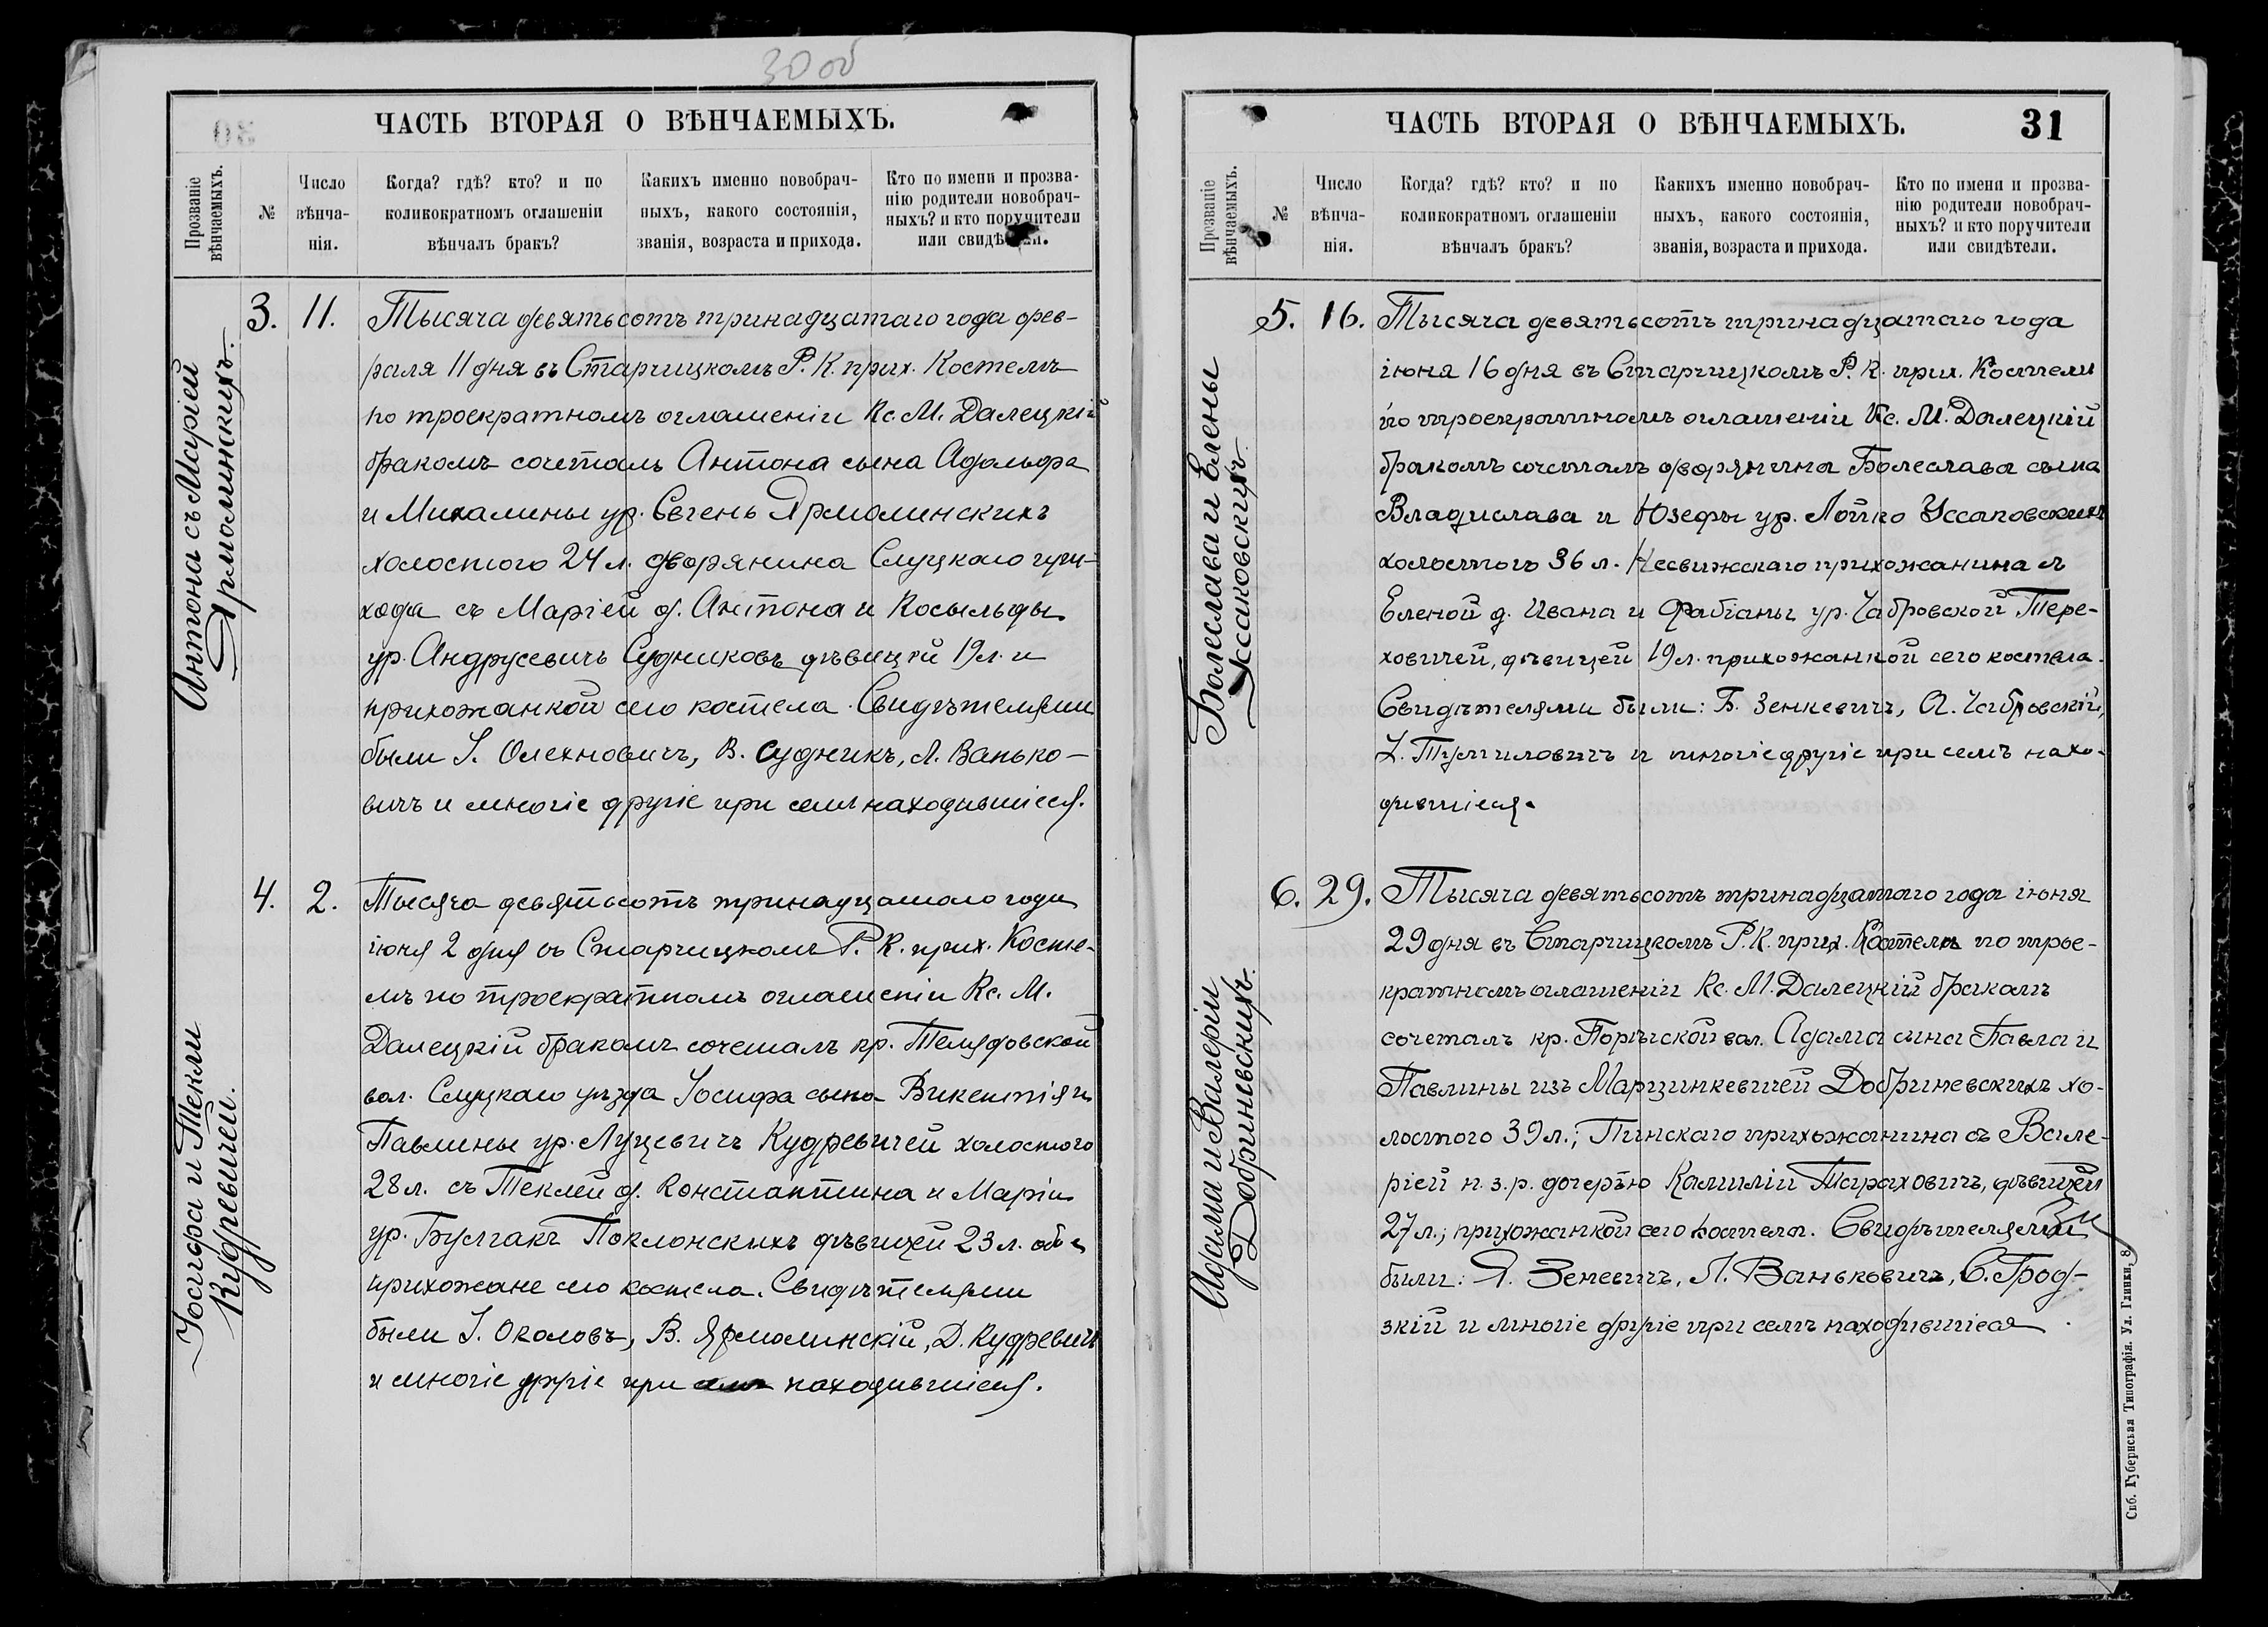 30 об
ЧАСТЬ ВТОРАЯ О ВѢНЧАЕМЫХЪ.
Прозваніе вѣнчаемыхъ.
№
Число вѣнча-
нія.
Когда? гдѣ? кто? и по
коликократномъ оглашеніи
вѣнчалъ бракъ?
Какихъ именно новобрач-
ныхъ, какого состоянія,
званія, возраста и прихода.
Кто по имени и прозва-
нію родители новобрач-
ныхъ? и кто поручители
или свидѣтели.
Антона съ Маріей
Ярмолинскихъ.
3. 11. Тысяча девятьсотъ тринадцатаго года фев-
раля 11 дня въ Старчицкомъ Р. К. прих. Костелѣ
по троекратномъ оглашеніи Кс. М. Далецкій
бракомъ сочеталъ Антона сына Адольфа
и Михалины ур. Евгень Ярмолинскихъ
холостого 24 л. дворянина Слуцкаго при-
хода съ Маріей д. Антона и Касыльды
ур. Андрусевичъ Судниковъ дѣвицей 19 л. и
прихожанкой сего костела. Свидѣтелями
были І. Олехновичъ, В. Судникъ, Л. Ванько-
вичъ и многіе другіе при семъ находившіеся.
Іосифа и Текли
Кудревичей.
4. 2. Тысяча девятьсотъ тринадцатаго года
іюня 2 дня въ Старчицкомъ Р. К. прих. Косте-
лѣ по троекратномъ оглашеніи Кс. М.
Далецкій бракомъ сочеталъ кр. Телядовской
вол. Слуцкаго уѣзда Іосифа сына Викентія и
Павлины ур. Луцевичъ Кудревичей холостого
28 л. съ Теклей д. Константина и Маріи
ур. Булгакъ Поклонскихъ дѣвицей 23 л. обое
прихожане сего костела. Свидѣтелями
были І. Околовъ, В. Ярмолинскій, Д. Кудревичъ
и многіе другіе при семъ находившіеся.
ЧАСТЬ ВТОРАЯ О ВѢНЧАЕМЫХЪ.
31
Прозваніе вѣнчаемыхъ.
№
Число вѣнча-
нія.
Когда? гдѣ? кто? и по
коликократномъ оглашеніи
вѣнчалъ бракъ?
Какихъ именно новобрач-
ныхъ, какого состоянія,
званія, возраста и прихода.
Кто по имени и прозва-
нію родители новобрач-
ныхъ? и кто поручители
или свидѣтели.
Болеслава и Елены
Уссаковскихъ
5. 16. Тысяча девятьсотъ тринадцатаго года
іюня 16 дня въ Старчицкомъ Р. К. прих. Костелѣ
по троекратномъ оглашеніи Кс. М. Далецкій
бракомъ сочеталъ дворянина Болеслава сына
Владислава и Юзефы ур. Лойко Уссаковскихъ
холостого 36 л. Несвижскаго прихожанина съ
Еленой д. Ивана и Фабіаны ур. Чабровской Тере-
ховичей, дѣвицей 19 л. прихожанкой сего костела.
Свидѣтелями были: Б. Зенкевичъ, А. Чабровскій,
І. Тумиловичъ и многіе другіе при семъ нахо-
дившіеся.
Адама и Валеріи
Добриневскихъ.
6. 29. Тысяча девятьсотъ тринадцатаго года іюня
29 дня въ Старчицкомъ Р. К. прих. Костелѣ по трое-
кратномъ оглашеніи Кс. М. Далецкій бракомъ
сочеталъ кр. Порѣчской вол. Адама сына Павла и
Павлины изъ Марцинкевичей Добриневскихъ хо-
лостого 39 л.; Пинскаго прихожанина съ Вале-
ріей н. з. р. дочерью Камиліи Тарахович, дѣвицей
27 л.; прихожанкой сего костела. Свидѣтелями
были: Я. Зеневичъ, Л. Ваньковичъ, С. Грод-
зкій и многіе другіе при семъ находившіеся.
Спб. Губернская Типографія. Ул. Глинки, 8